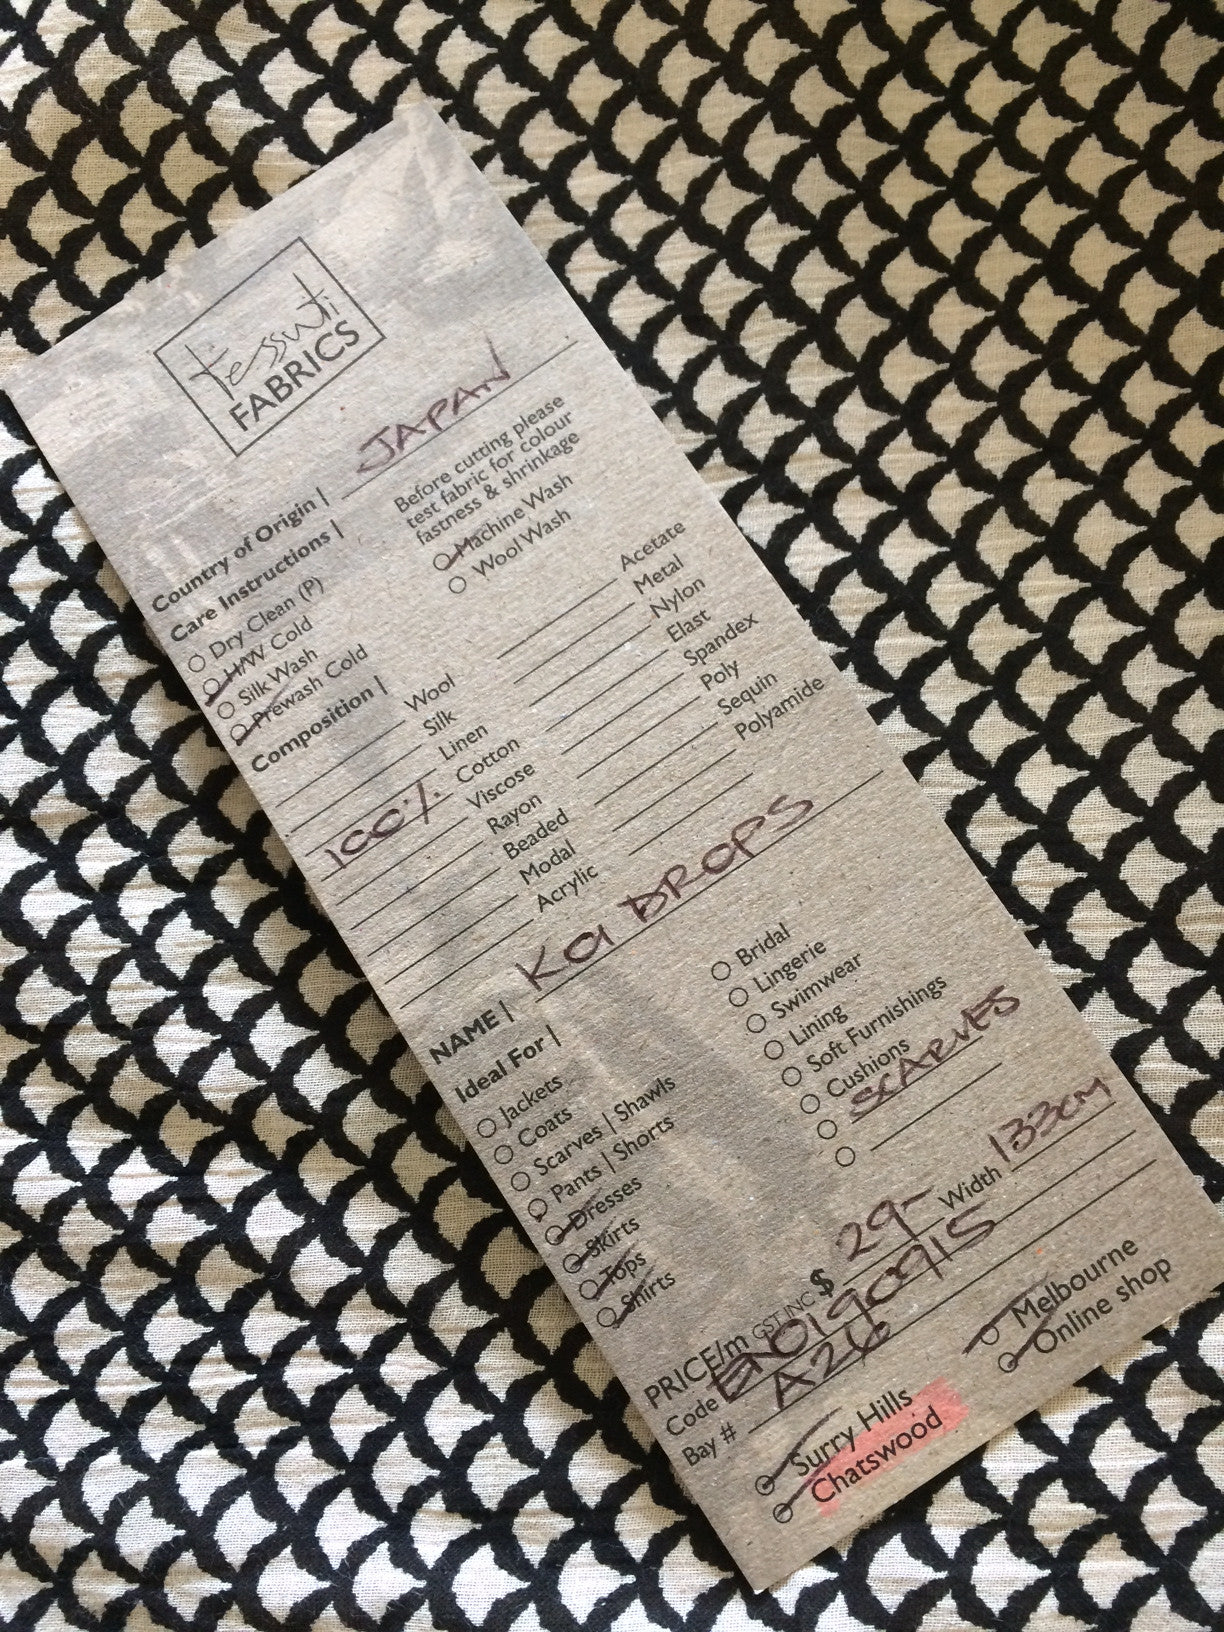 tessuti
FABRICS
Country of Origin | JAPAN
Care Instructions |
Before cutting please
test fabric for colour
fastness & shrinkage
Dry Clean (P)
H/W Cold
Silk Wash
Prewash Cold
Machine Wash
Wool Wash
Composition |
Wool
Silk
Linen
100% Cotton
Viscose
Rayon
Beaded
Modal
Acrylic
Acetate
Metal
Nylon
Elast
Spandex
Poly
Sequin
Polyamide
NAME | KOI DROPS
Ideal For |
Jackets
Coats
Scarves | Shawls
Pants | Shorts
Dresses
Skirts
Tops
Shirts
Bridal
Lingerie
Swimwear
Lining
Soft Furnishings
Cushions
SCARVES
PRICE/m GST INC $ 29- Width 133cm
Code EN0190915
Bay # A26
Surry Hills
Chatswood
Melbourne
Online shop